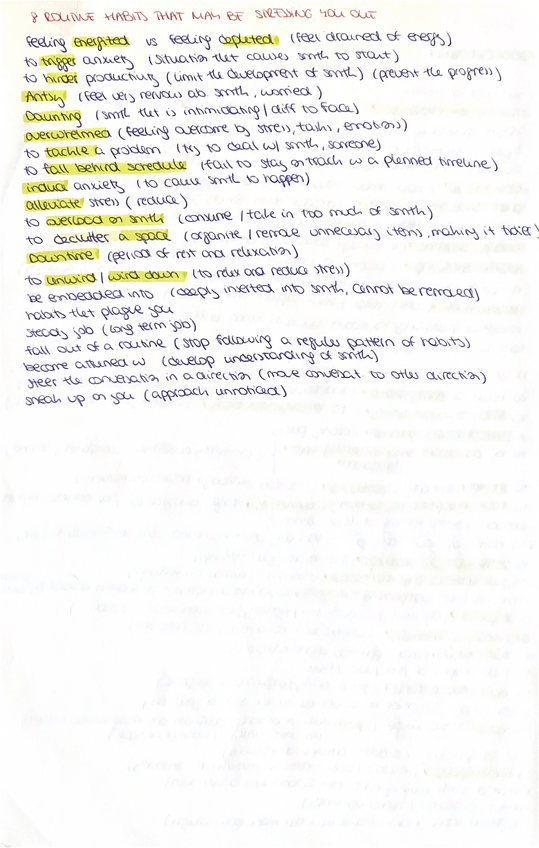 8 ROUTINE HABITS THAT MAY BE STRESSING YOU OUT
feeling energited vs feeling depleted (feel drained of energy)
to trigger anxiety (situation that causes smth to start)
to hinder productivity (limit the development of smth) (prevent the progress)
Antsy (feel very nervous ab. smth, worried)
Daunting (smth that is intimidating / diff to face)
overwhelmed (feeling overcome by stress, tasks, emotions)
to tackle a problem (try to deal w/ smth, someone)
to fall behind schedule (fail to stay on track w a planned timeline)
induce anxiety (to cause smth to happen)
alleviate stress (reduce)
to overload on smth (consume / take in too much of smth)
to declutter a space (organite / remove unnecessary items, making it tidier!
Downtime (period of rest and relaxation)
to unwind / wind down (to relax and reduce stress)
be embedded into (deeply inserted into smth, cannot be removed)
habits that plague you
steady job (long term job)
fall out of a routine (stop following a regular pattern of habits)
become attuned w (develop understanding of smth)
steer the conversation in a direction (move conversat to other direction)
sneak up on you (approach unnoticed)